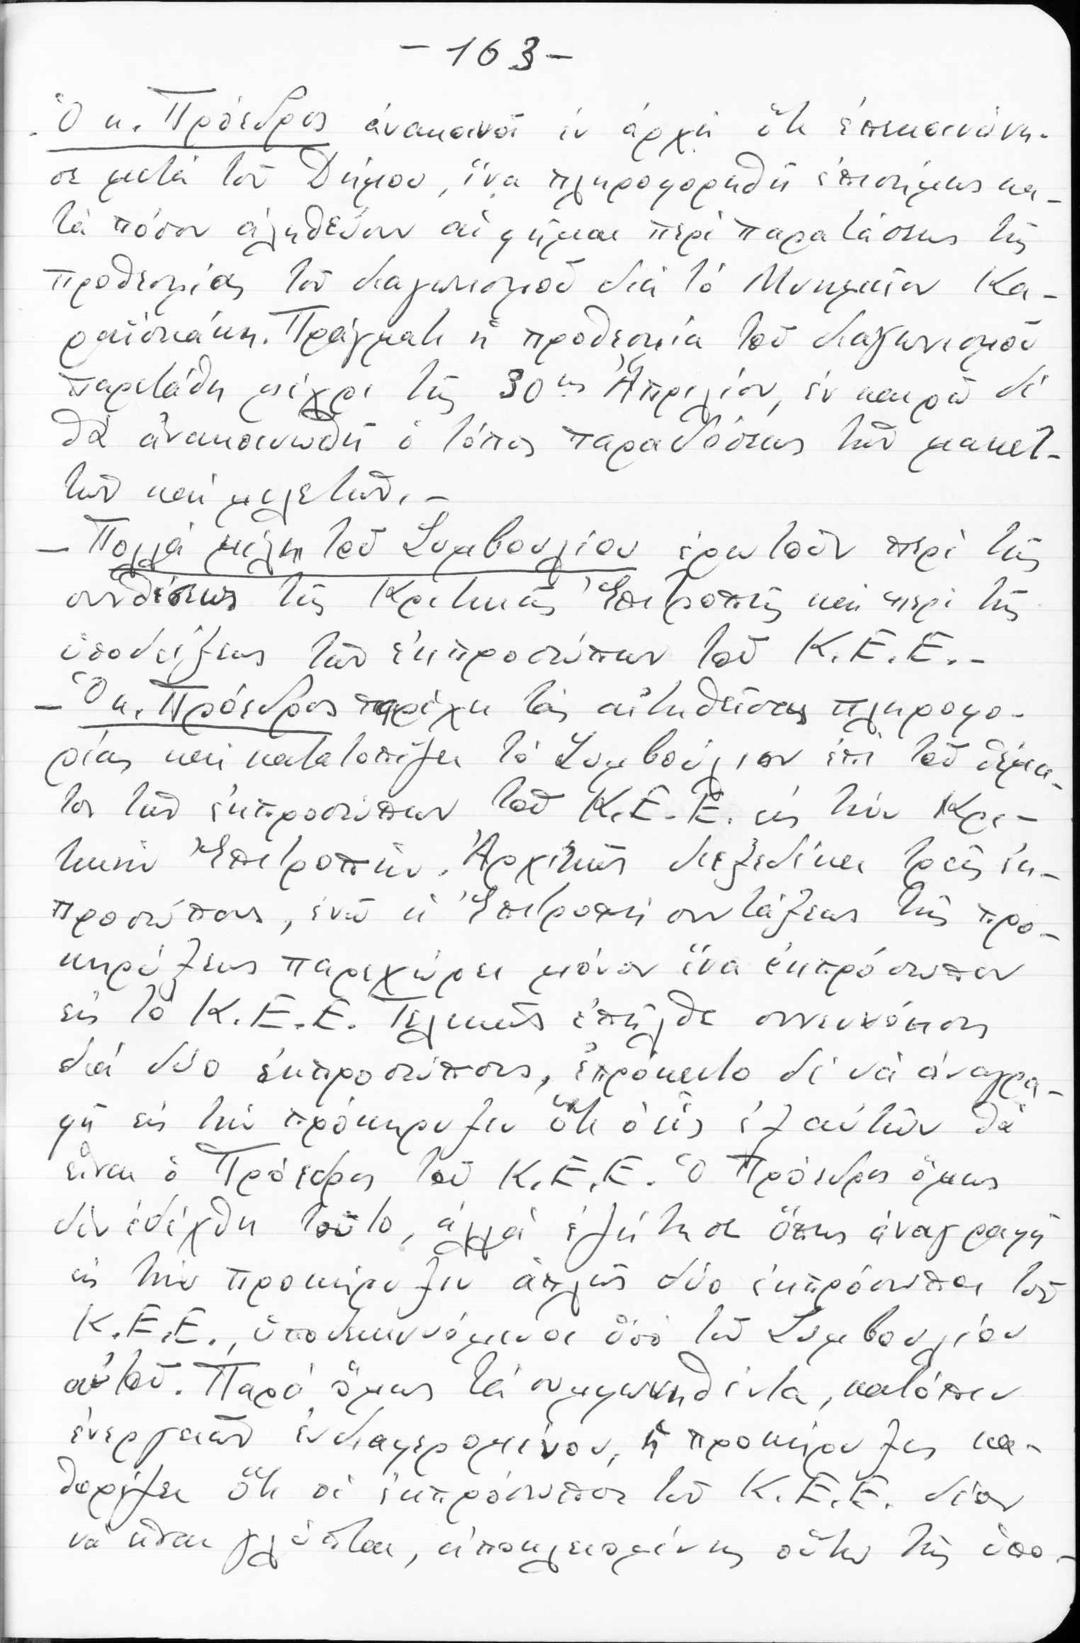 - 163 -
Ὁ κ. Πρόεδρος ἀνακοινοῖ ἐν ἀρχῇ ὅτι ἐπεκοινώνη-
σε μετά τοῦ Δήμου, ἵνα πληροφορηθῆ ἐπισήμως κα-
τά πόσον ἀληθεύουν αἱ φῆμαι περί παρατάσεως τῆς
προθεσμίας τοῦ διαγωνισμοῦ διά τό Μνημεῖον Κα-
ραϊσκάκη. Πράγματι ἡ προθεσμία τοῦ διαγωνισμοῦ
παρετάθη μέχρι τῆς 30ης Ἀπριλίου, ἐν καιρῶ δέ
θά ἀνακοινωθῆ ὁ τόπος παραδόσεως τῶν μακετ-
τῶν καί μελετῶν. -
- Πολλά μέλη τοῦ Συμβουλίου ἐρωτοῦν περί τῆς
συνθέσεως τῆς Κριτικῆς Ἐπιτροπῆς καί περί τῆς
ὑποδείξεως τῶν ἐκπροσώπων τοῦ Κ.Ε.Ε. -
- Ὁ κ. Πρόεδρος παρέχει τάς αἰτηθείσας πληροφο-
ρίας καί κατατοπίζει τό Συμβούλιον ἐπί τοῦ θέμα-
τος τῶν ἐκπροσώπων τοῦ Κ.Ε.Ε. εἰς τήν Κρι-
τικήν Ἐπιτροπήν. Ἀρχικῶς διεξεδίκει τρεῖς ἐκ-
προσώπους, ἐνῶ ἡ Ἐπιτροπή συντάξεως τῆς προ-
κηρύξεως παρεχώρει μόνον ἕνα ἐκπρόσωπον
εἰς τό Κ.Ε.Ε. Τελικῶς ἐπῆλθε συνεννόησις
διά δύο ἐκπροσώπους, ἐπρόκειτο δέ νά ἀναγρα-
φῆ εἰς τήν προκήρυξιν ὅτι ὁ εἷς ἐξ αὐτῶν θά
εἶναι ὁ Πρόεδρος τοῦ Κ.Ε.Ε. Ὁ Πρόεδρος ὅμως
δέν ἐδέχθη τοῦτο, ἀλλά ἐζήτησε ὅπως ἀναγραφῆ
εἰς τήν προκήρυξιν ἁπλῶς δύο ἐκπρόσωποι τοῦ
Κ.Ε.Ε., ὑποδεικνυόμενοι ὑπό τοῦ Συμβουλίου
αὐτοῦ. Παρά ὅμως τά συμφωνηθέντα, κατόπιν
ἐνεργειῶν ἐνδιαφερομένου, ἡ προκήρυξις κα-
θορίζει ὅτι οἱ ἐκπρόσωποι τοῦ Κ.Ε.Ε. δέον
νά εἶναι γλύπται, ἀποκλειομένης οὕτω τῆς ὑπο-